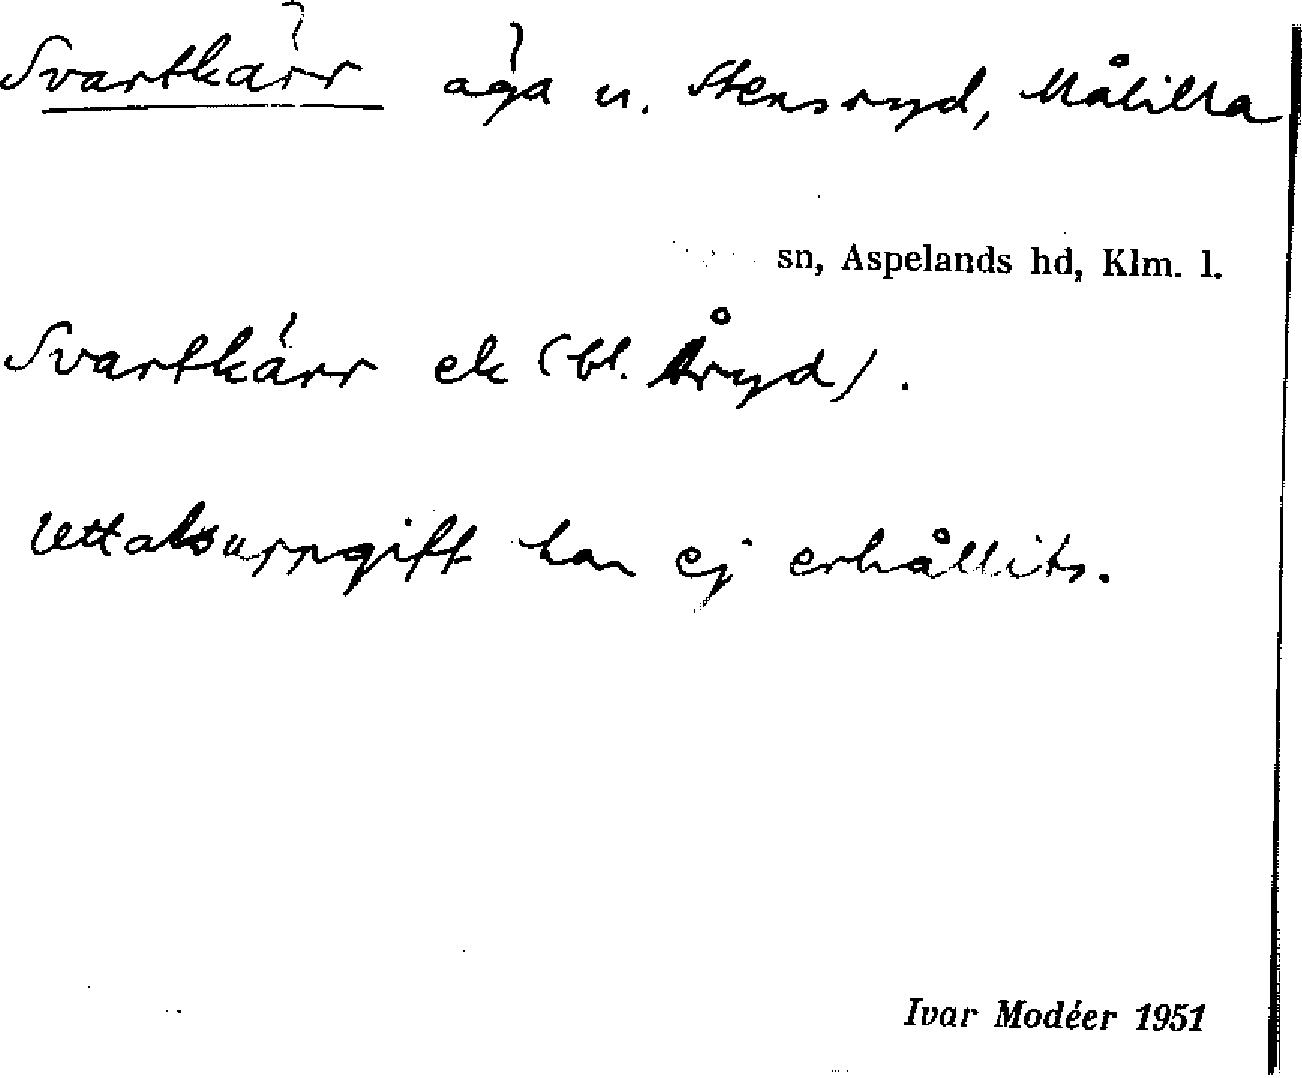 Svartkärr äga u. Stensryd, Målilla
sn, Aspelands hd, Klm. l.
Svartkärr ek (bl. Åryd).
Uttalsuppgift har ej erhållits.
Ivar Modéer 1951